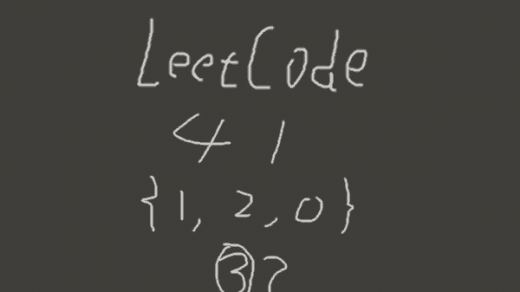 LeetCode
41
{1, 2, 0}
3?